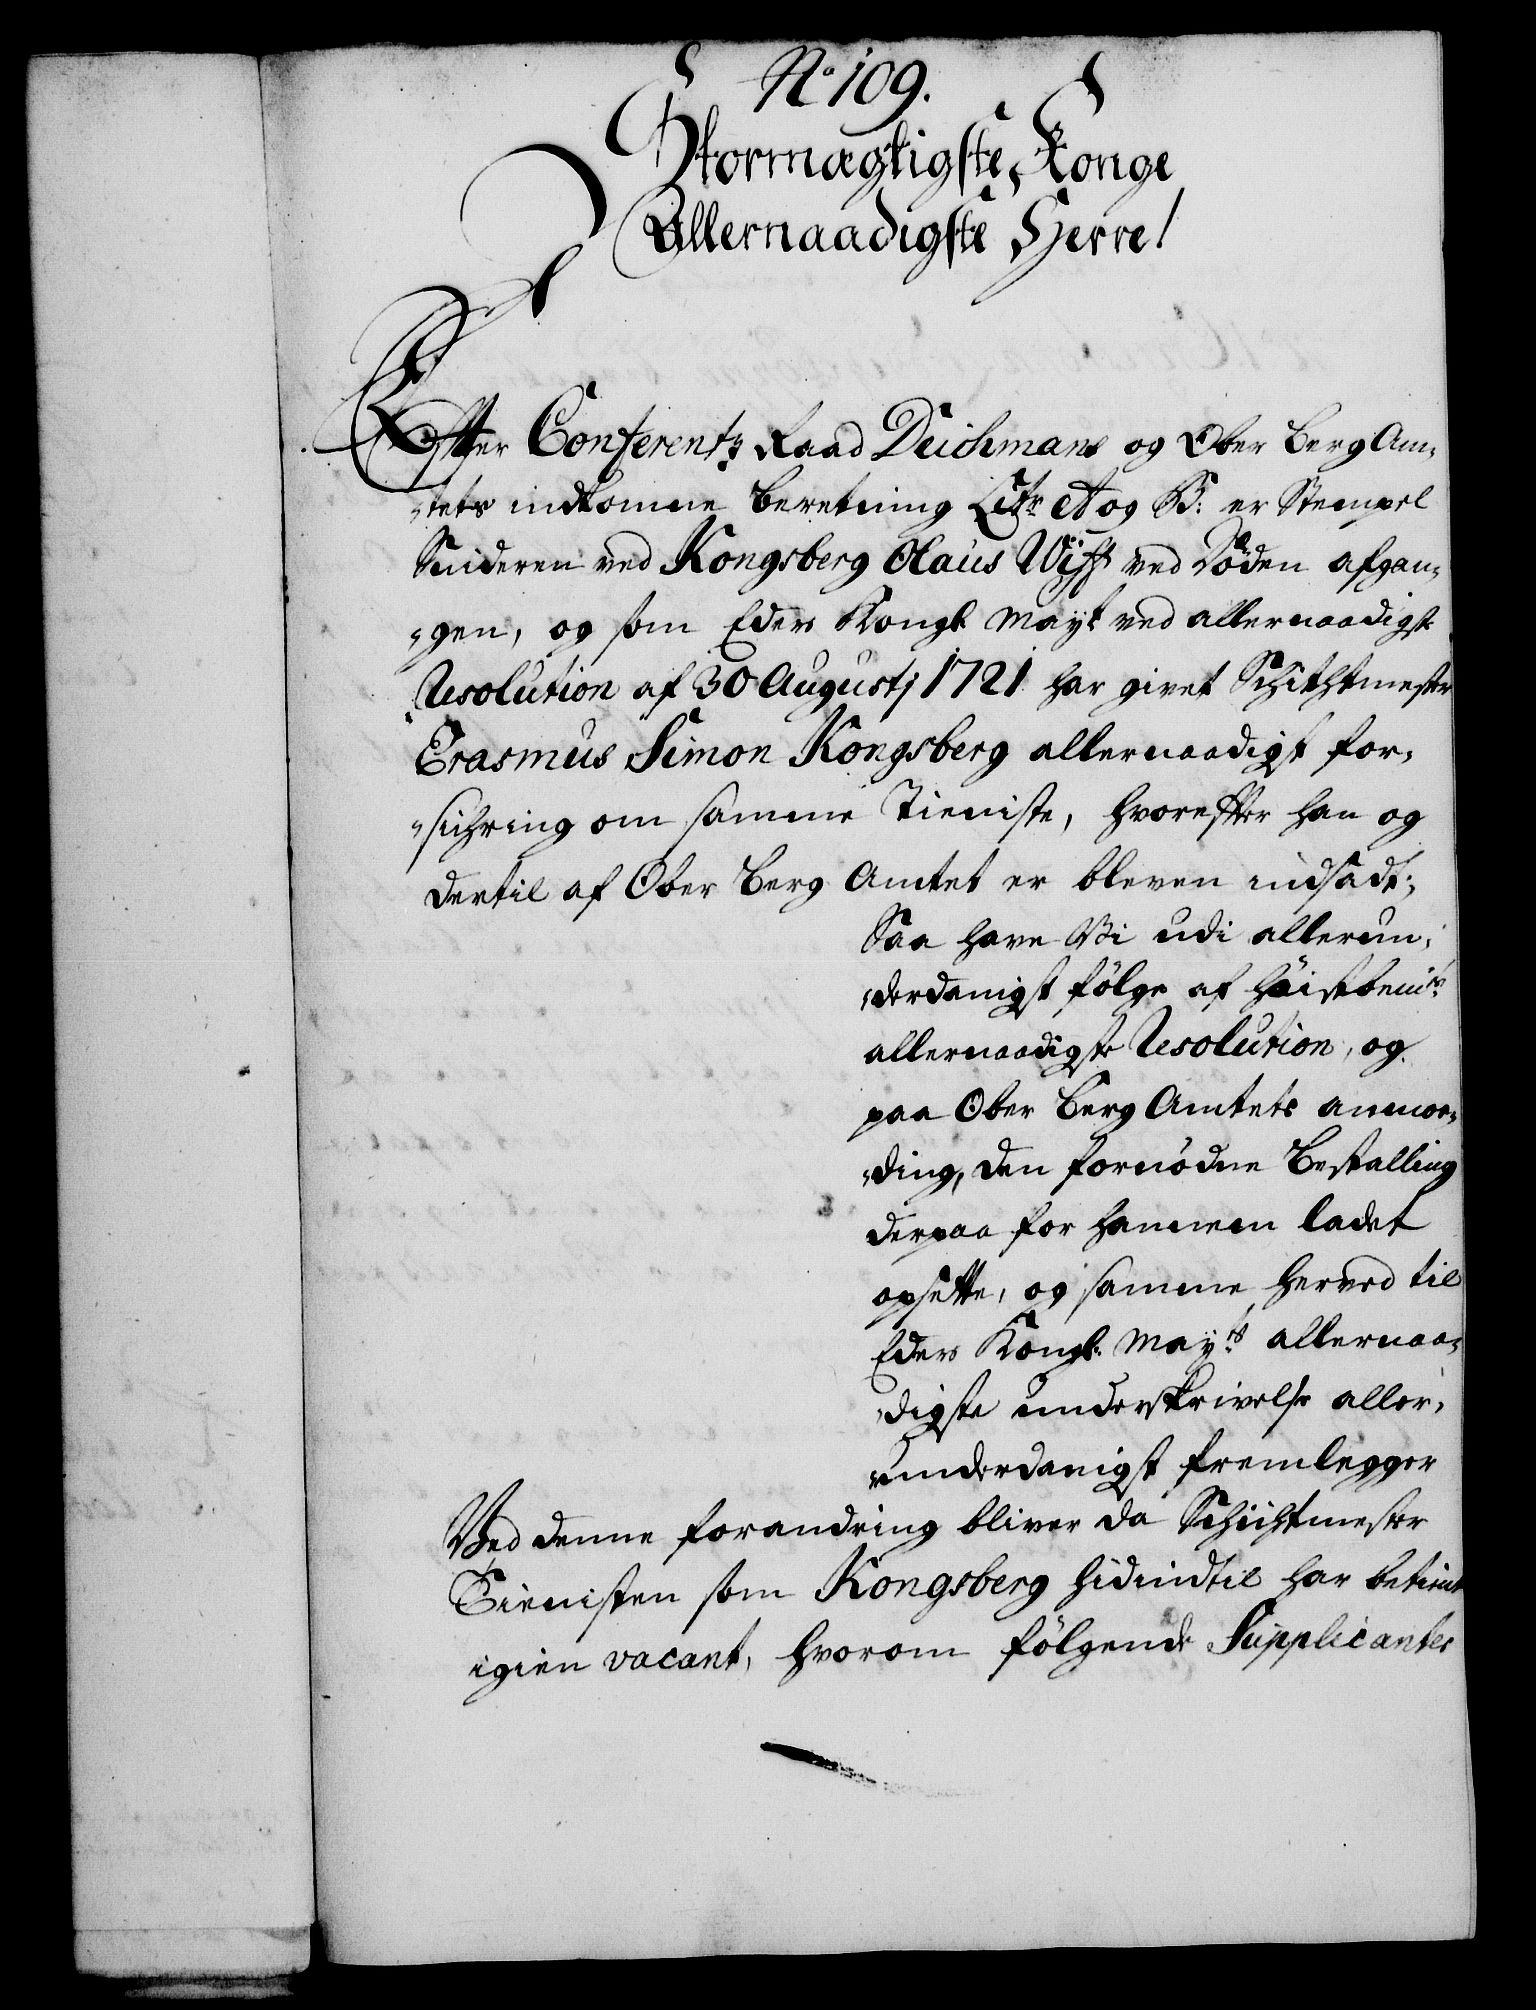 No 109.
Stormægtigste Konge
Allernaadigste Herre!
Efter Conferentz Raad Deichmans og Ober Berg Am-
-tets indkomne beretning Litr. A og B: er Stempel
Snideren ved Kongsberg Olaus Wiff ved Döden afgan-
-gen, og som Eders Kongl. Mayt ved allernaadigste
Resolution af 30 Augustj 1721 har givet Schichtmester
Erasmus Simon Kongsberg allernaadigst for-
-sichring om samme Tieniste, hvorefter han og
dertil af Ober Berg Amtet er bleven indsadt;
Saa have Vi udi allerun-
-derdanigst fölge af höistbemte
allernaadigste Resolution, og
paa Ober Berg Amtets anmo-
-ding, den fornödne Bestalling
derpaa for hannem ladet
opsette, og samme herved til
Eders Kongl. Mayts allernaa-
-digste underskrivelse aller-
-underdanigst fremlegger
Ved denne forandring bliver da Schichtmester
Tienisten som Kongsberg hidindtil har betient
igien vacant, hvorom fölgende Supplicanter